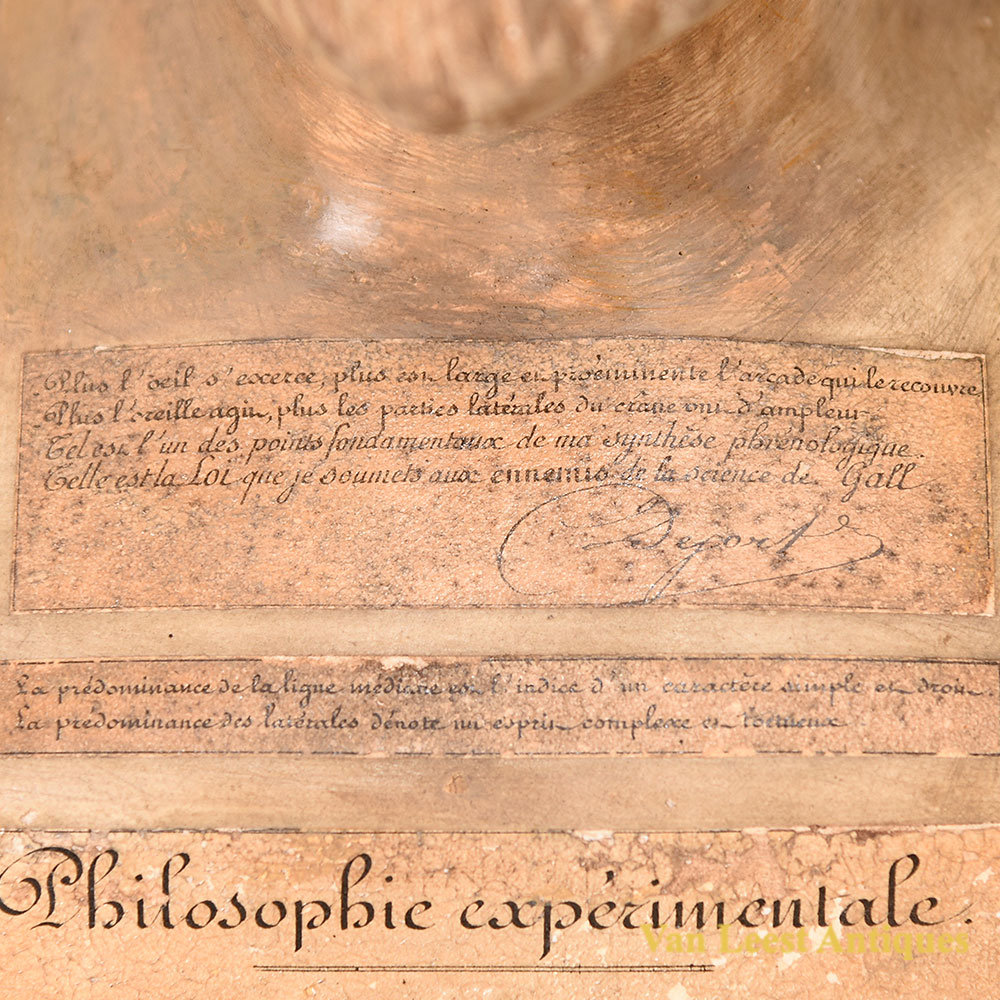 Plus l'oeil s'exerce, plus est large et proéminente l'arcade qui le recouvre,
Plus l'oreille agit, plus les parties latérales du crâne ont d'ampleur.
Tel est l'un des points fondamentaux de ma synthèse phrénologique.
Telle est la LOI que je soumets aux ennemis de la science de Gall.
La prédominance de la ligne médiane est l'indice d'un caractère simple et droit.
La prédominance des latérales dénote un esprit complexe et tortueux
Philosophie expérimentale.
Van Leest Antiques